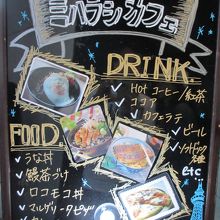 ミハラシカフェ
DRINK.
✓Hot コーヒー/紅茶
✓ココア
✓カフェラテ
✓ビール
✓ソフトドリンク
各種
etc
FOOD.
✓うな丼
✓鰻茶づけ
✓ロコモコ丼
✓マルゲリータピザ